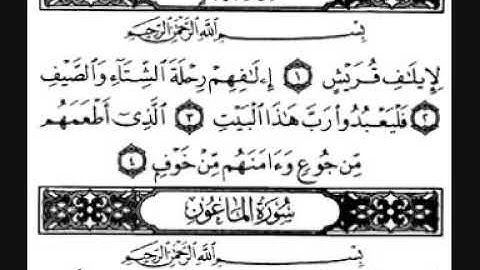 بِسْمِ ٱللَّهِ ٱلرَّحْمَٰنِ ٱلرَّحِيمِ
لِإِيلَٰفِ قُرَيْشٍ ١ إِۦلَٰفِهِمْ رِحْلَةَ ٱلشِّتَآءِ وَٱلصَّيْفِ
٢ فَلْيَعْبُدُوا۟ رَبَّ هَٰذَا ٱلْبَيْتِ ٣ ٱلَّذِىٓ أَطْعَمَهُم
مِّن جُوعٍ وَءَامَنَهُم مِّنْ خَوْفٍۭ ٤
سُورَةُ المَاعُونِ
بِسْمِ ٱللَّهِ ٱلرَّحْمَٰنِ ٱلرَّحِيمِ